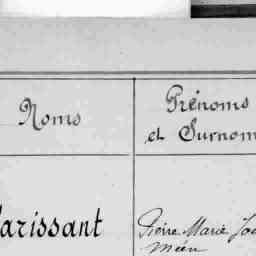 Noms
Prénoms
et Surnom
arissant
Pierre Marie
Méen